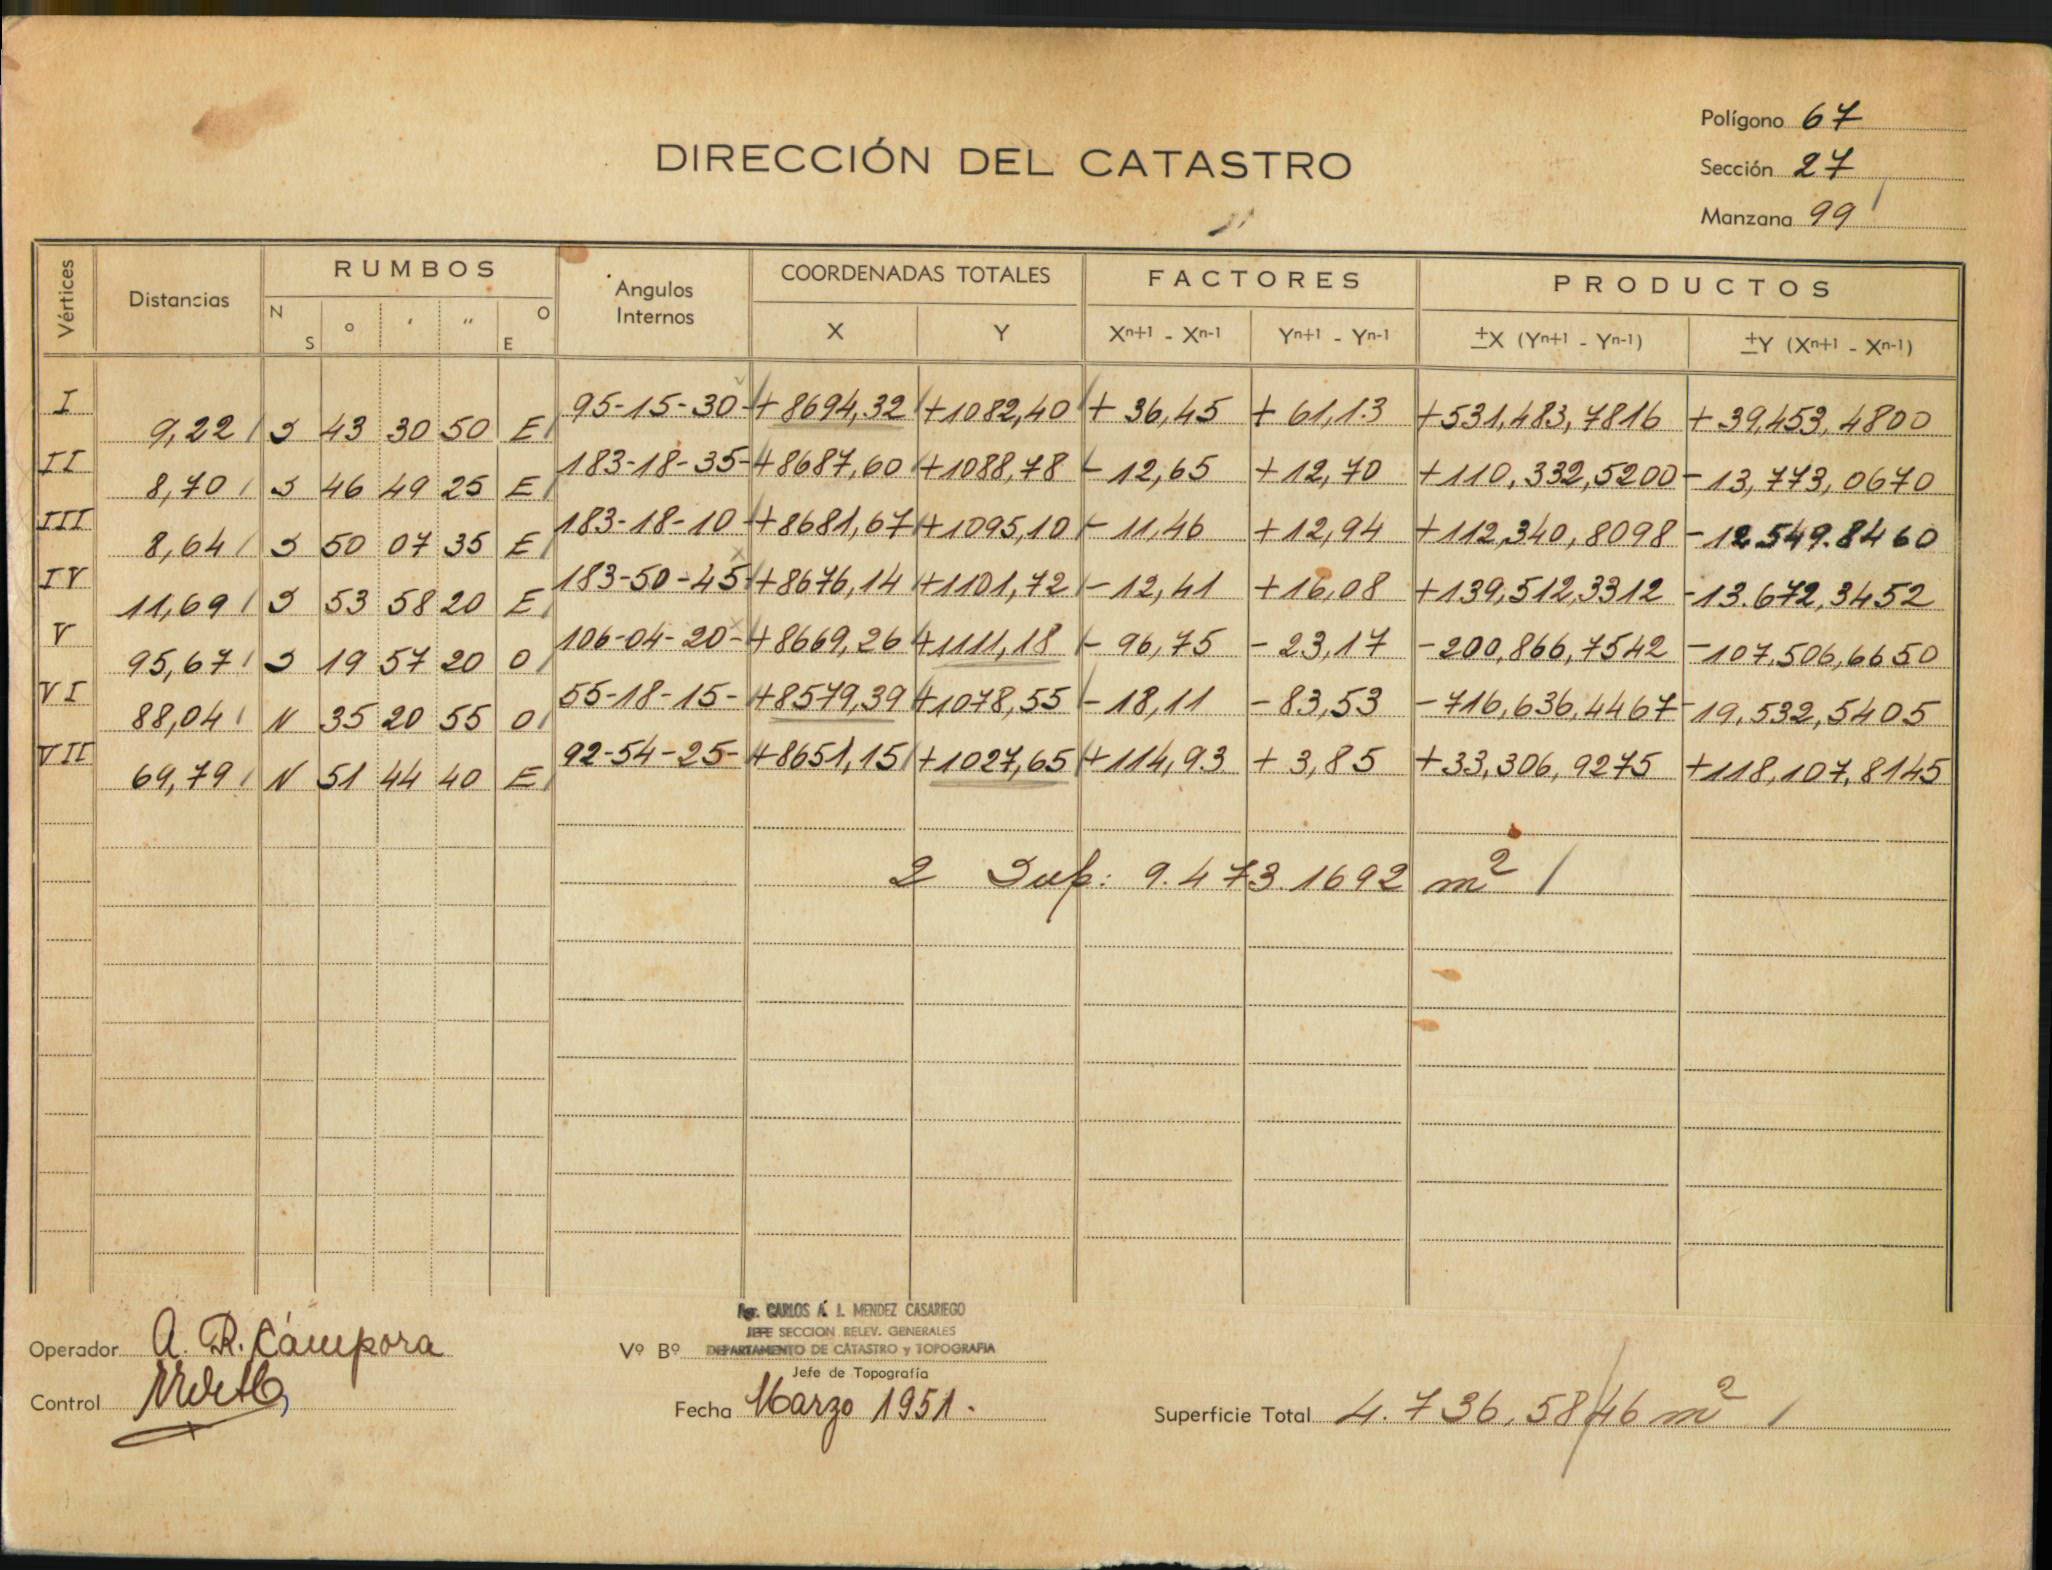 Polígono 67
DIRECCIÓN DEL CATASTRO
Sección 27
Manzana 99
Vértices Distancias RUMBOS Angulos Internos COORDENADAS TOTALES FACTORES PRODUCTOS
N S ° ' " O E X Y Xn+1 - Xn-1 Yn+1 - Yn-1 ±X (Yn+1 - Yn-1) ±Y (Xn+1 - Xn-1)
I 95-15-30- +8694,32 +1082,40 + 36,45 + 61,13 +531,483,7816 + 39,453,4800
9,22 S 43 30 50 E
II 183-18-35- +8687,60 +1088,78 - 12,65 +12,70 +110,332,5200 - 13,773,0670
8,70 S 46 49 25 E
III 183-18-10- +8681,67 +1095,10 - 11,46 +12,94 +112,340,8098 -12.549.8460
8,64 S 50 07 35 E
IV 183-50-45- +8676,14 +1101,72 - 12,41 +16,08 +139,512,3312 -13.672,3452
11,69 S 53 58 20 E
V 106-04-20- +8669,26 +1111,18 - 96,75 - 23,17 -200,866,7542 -107,506,6650
95,67 S 19 57 20 O
VI 55-18-15- +8579,39 +1078,55 - 18,11 - 83,53 -716,636,4467 -19,532,5405
88,04 N 35 20 55 O
VII 92-54-25- +8651,15 +1027,65 +114,93 + 3,85 +33,306,9275 +118,107,8145
69,79 N 51 44 40 E
2 Sup: 9.473.1692 m²
Agr. CARLOS A. J. MENDEZ CASARIEGO
JEFE SECCION RELEV. GENERALES
DEPARTAMENTO DE CATASTRO y TOPOGRAFIA
Operador A. R. Cámpora Vº Bº
Jefe de Topografía
Control Fecha Marzo 1951. Superficie Total 4.736,58/46 m²